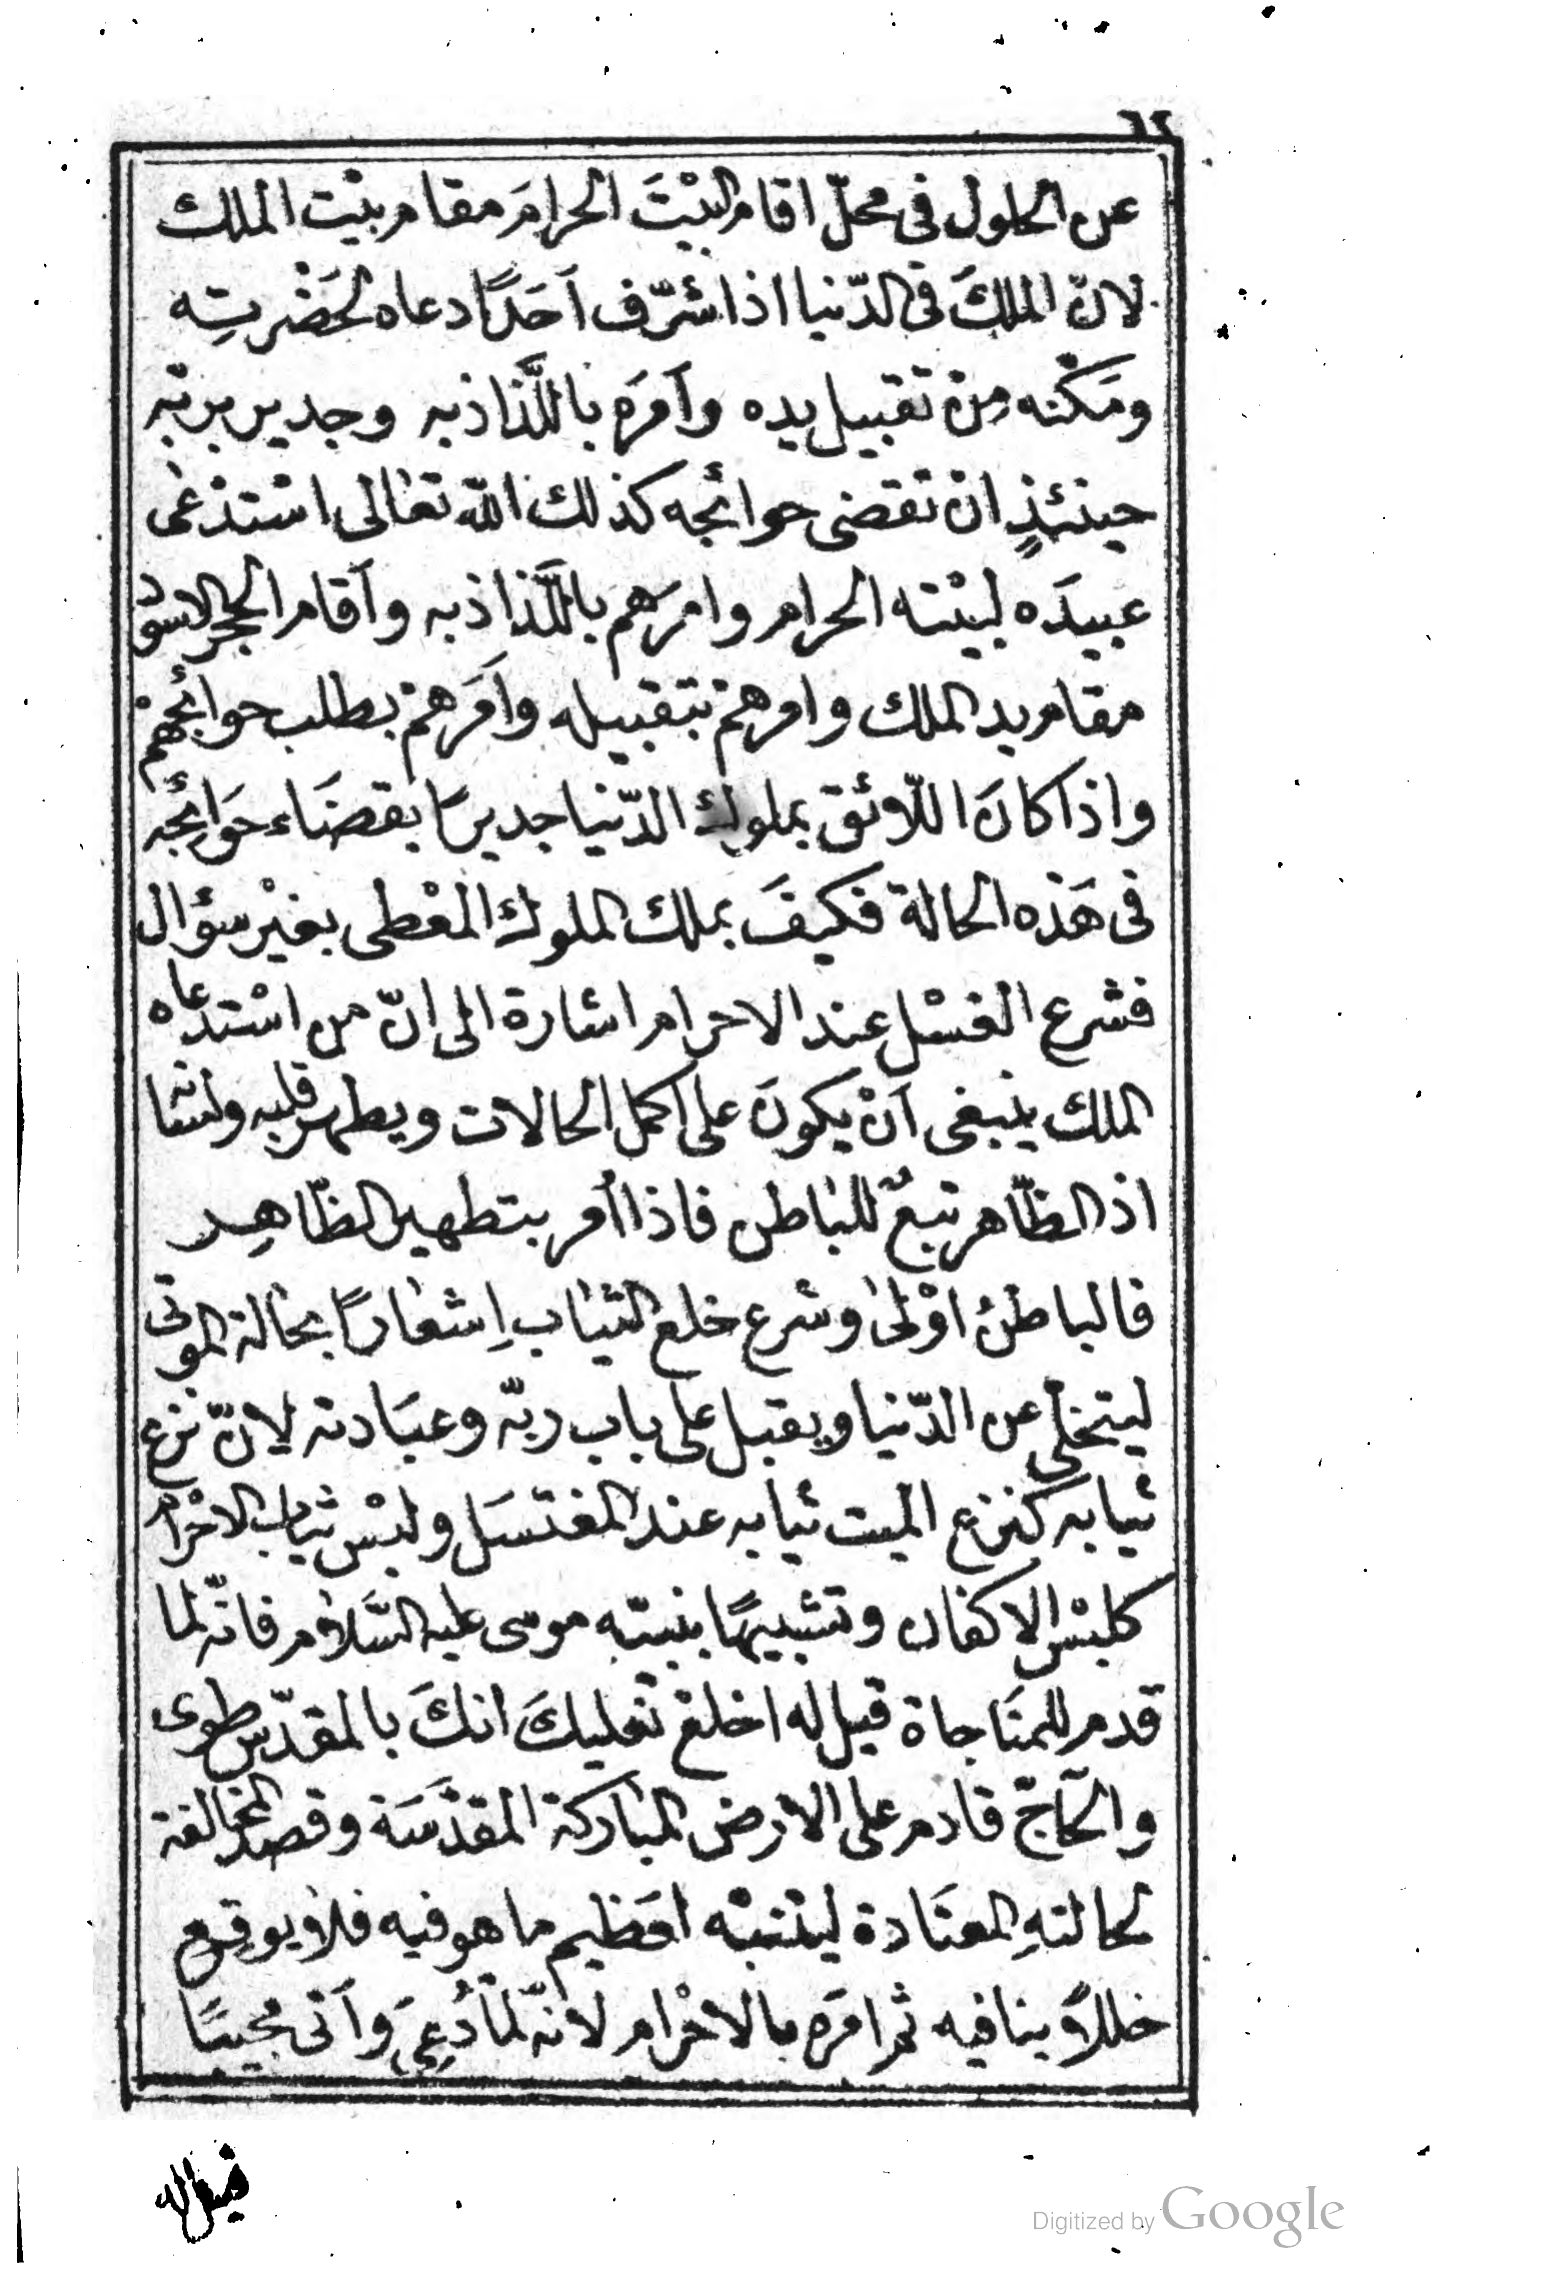 ٦٢
عن الحلول فى محلّ اقام البيْتَ الحرامَ مقام بيْت الملك
لانّ الملكَ فى الدّنيا اذا شرّف اَحَدًا دعاه لحَضْرتِه
ومَكنْه مِنْ تقبيل يده واَمَرَه باللَّذاذ به وجدير بربّه
حينئذٍ انْ تقضى حوائجه كذلك الله تعالى اسْتدْعى
عبيدَه لبيْته الحرام وامرَهم باللَّذاذ به واَقام الحجر الاسود
مقام يد الملك وامرهمْ بتقبيله واَمَرهمْ بطلب حوائجهمْ
واذا كانَ اللّائق بملوك الدّنيا جديرًا بقضَاء حَوَائجه
فى هَذه الحالة فكيفَ بملك الملوك المعْطى بغيْر سؤال
فشرع الغسْل عند الاحرام اشارة الى انّ من اسْتدعاه
الملك ينبغى اَنْ يكونَ على اكمل الحالات ويطهر قلبه ولسَانه
اذ الظّاهر تبعٌ للباطن فاذا اُمر بتطهير الظّاهِر
فالباطنُ اوْلى وشرع خلع الثياب اِشعارًا بحالة الموتى
ليتخلى عن الدّنيا ويقبل على باب ربّه وعبَادته لانّ نزع
ثيابه كنزع الميت ثيابه عند المغتسَل ولبْس ثياب الاحْرام
كلبْس الاكفان وتشبيهًا بنبيّه موسى عليه السَّلام فانّه لما
قدم للمنَاجاة قيل له اخلعْ نعليكَ انكَ بالمقدّس طوى
والحَآجّ قادم على الارض المباركة المقدَّسَة وقصد المخالفة
لحالتهِ المعتَادة ليتنبّه لعَظيم ما هو فيه فلا يوقع
خللاً ينافيه ثم امَرَه بالاحْرام لانّه لمّا دُعِىَ واَتى مجيبًا
قيل له
Digitized by Google